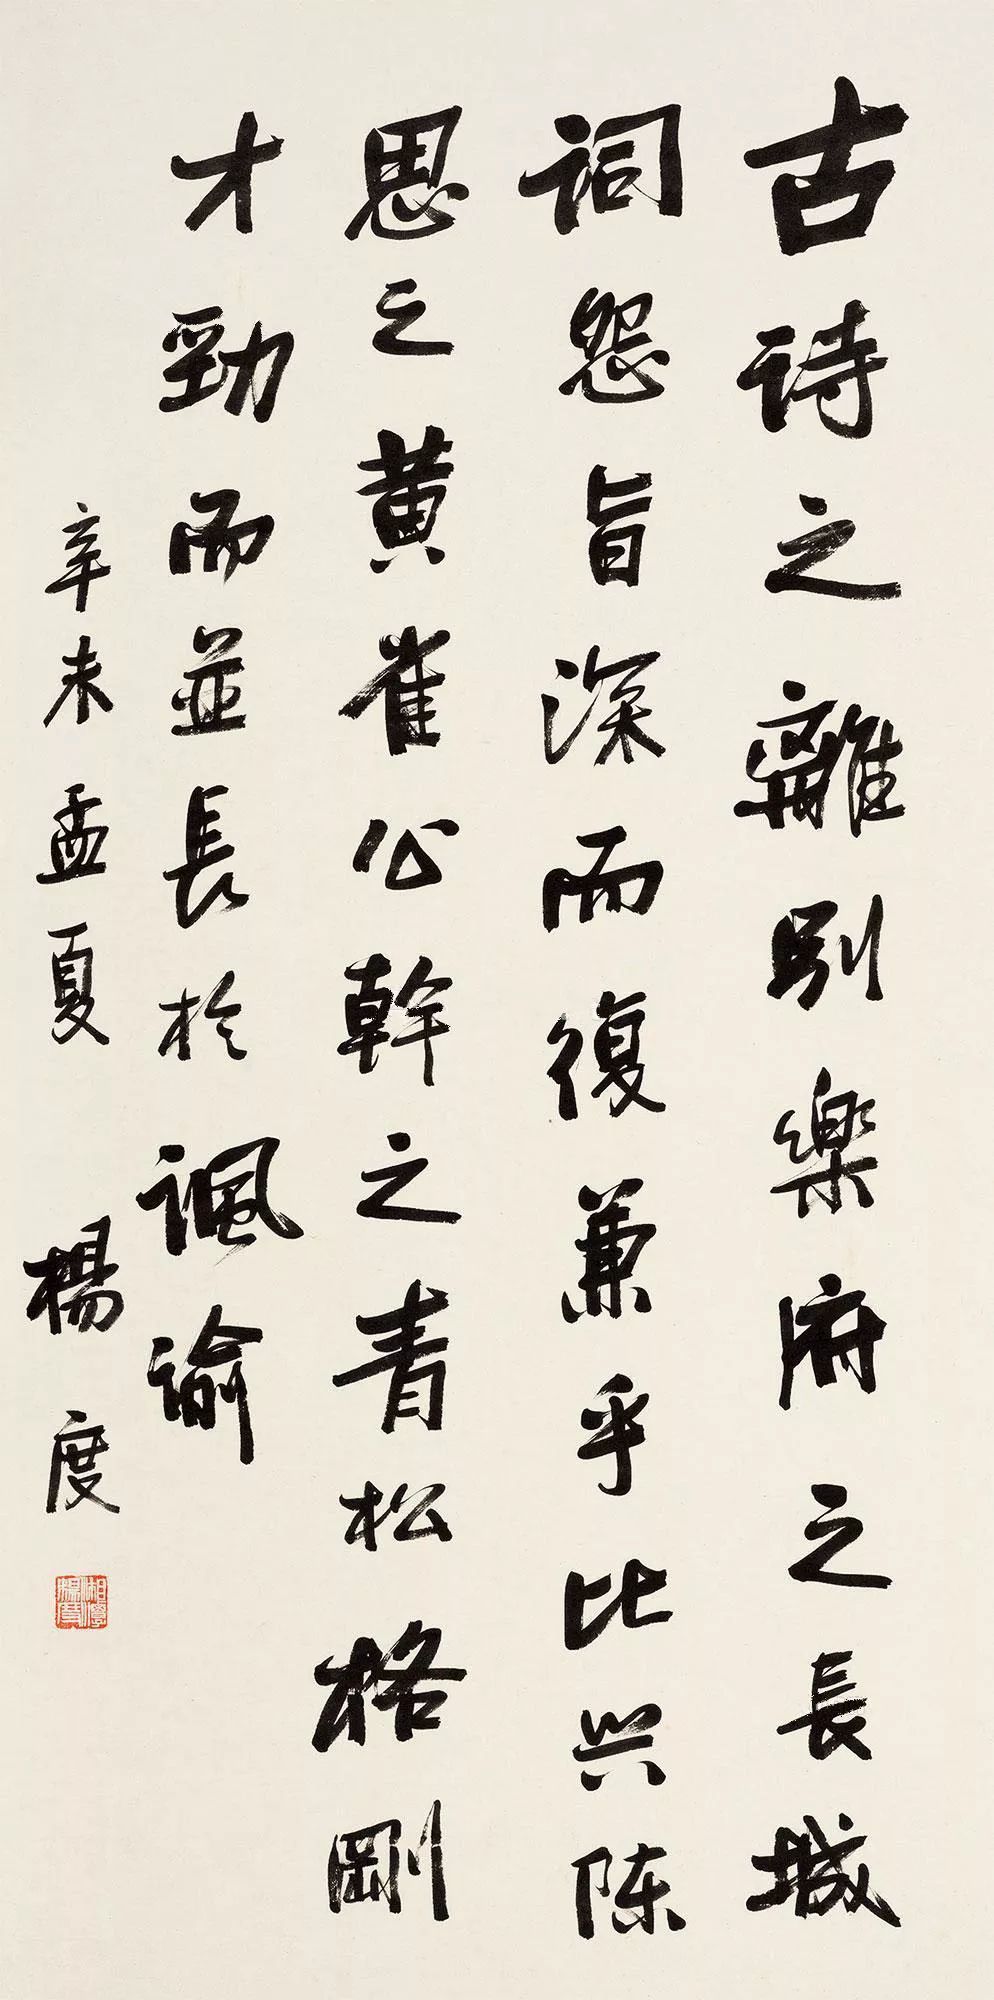 古诗之離别樂府之長城
詞怨旨深而復兼乎比兴陳
思之黄雀公幹之青松格剛
才勁而並長於諷諭
辛未孟夏
楊度
湘潭楊度